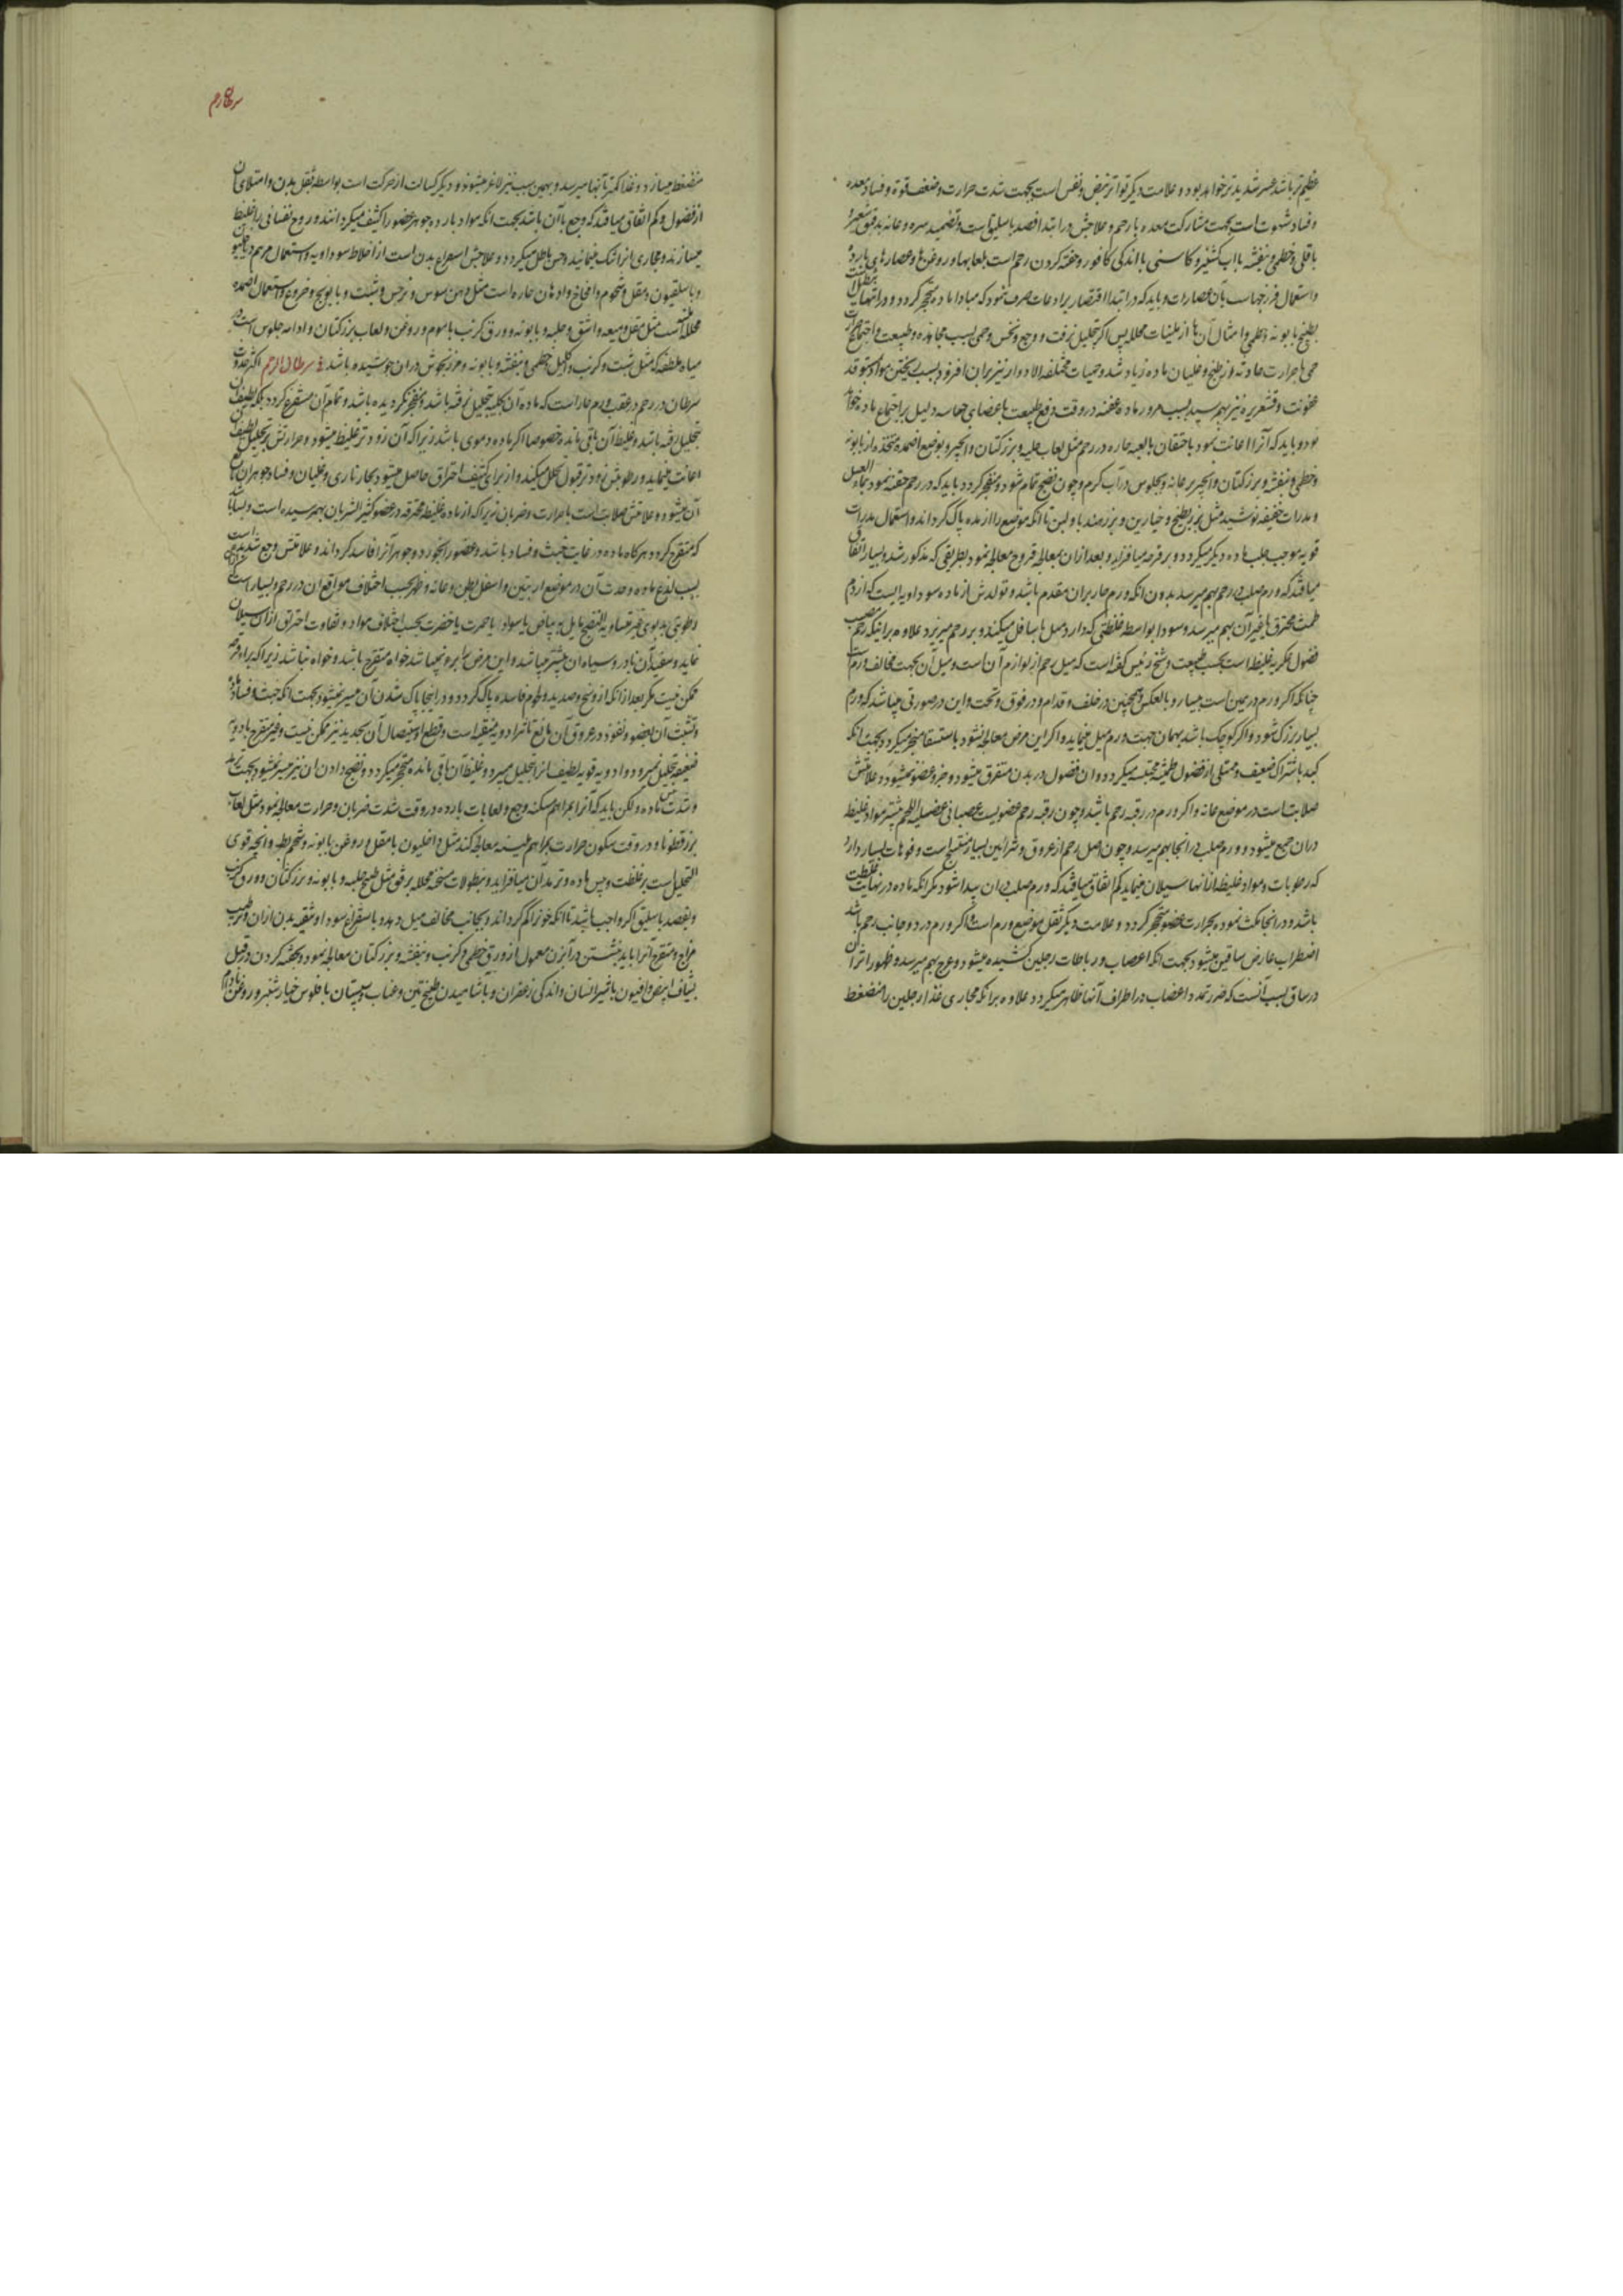 عظیم‌تر باشد عسر شدیدتر خواهد بود و علامت دیگر تواتر نبض و نفس است بجهت شدت حرارت و ضعف قوة و فساد معده
و فساد شهوت است بجهت مشارکت معده با رحم و علاجش در ابتدا فصد باسلیق است و تضمید سره و عانه بدقیق شعیر
باقلی و خطمی و بنفشه با آب کشنیز و کاسنی با اندکی کافور و حقنه کردن رحم است بلعابها و روغن‌ها و عصارهای بارده
و استعمال فرزجهاست بآن عصارات و باید که در ابتدا اقتصار برادعات صرف ننمود که مبادا ماده متحجر کردد و در انتها
بطبخ بابونه و خطمی و امثال آن‌ها از ملینات محلله پس اگر تحلیل نرفت و وجع و نخس و حمی بسبب مجاهده طبیعت و اجتماع
حمی با حرارت حادثه از طبخ و غلیان ماده زیاد شد و حمیات مختلفة الادوار نیز بران افزود بسبب پختن مواد
عفونت و قشعریره نیز بهم رسید بسبب مرور ماده عفنه در وقت دفع طبیعت باعضای حساسه دلیل بر اجتماع ماده خواهد
بود و باید که آنرا اعانت نمود باحتقان بالعبه حاره در رحم مثل لعاب حلبه و بزرکتان و انجیر و بوضع اضمده متخذه از بابونه
و خطمی و بنفشه و بزرکتان و انجیر بر عانه و بجلوس در آب کرم و چون نضج تمام شود و منفجر کردد باید که در رحم حقنه نمود بماء العسل
و مدرات خفیفه نوشید مثل بزر بطیخ و خیارین و بزر هندبا و لبن تا انکه موضع را از مده پاک کرداند و استعمال مدرات
قویه موجب جلب ماده دیگر میکردد و بر قرحه می‌افزاید و بعد از آن بمعالجه قروح معالجه نمود بطریقی که مذکور شد و بسیار اتفاق
میافتد که ورم صلب در رحم بهم میرسد بدون انکه ورم حار بران مقدم باشد و تولدش از ماده سوداویه ایست که از دم
طمث محترق یا غیر آن بهم میرسد و سودا بواسطه غلظتی که دارد میل باسافل میکند و بر رحم میریزد علاوه بر اینکه رحم مصب
فضول عکریه غلیظه است بحسب طبیعت و شیخ رئیس گفته است که میل رحم از لوازم آن است و میل آن بجهت مخالف ورم است
چنانکه اکر ورم در یمین است بیسار و بالعکس و همچنین در خلف و قدام و در فوق و تحت و این در صورتی میباشد که ورم
بسیار بزرک شود و اکر کوچک باشد بهمان جهت ورم میل مینماید و اکر این مرض معالجه نشود باستسقا منجر میکردد بجهت انکه
کبد باشتراک ضعیف و ممتلی از فضول طمثیه محتبسه میکردد و ان فضول در بدن متفرق میشود و جزو عضو نمیشود و علامتش
صلابت است در موضع عانه و اکر ورم در رقبه رحم باشد و چون رقبه رحم عضویست عصبانی عضلیة اللحم بیشتر مواد غلیظ
دران جمع میشود و ورم صلب در انجا بهم میرسد و چون اصل رحم از عروق و شرائین بسیار منتسج است و فوهات بسیار دارد
که رطوبات و مواد غلیظه ازانها سیلان مینماید کم اتفاق میافتد که ورم صلب دران پیدا شود مکر انکه ماده در نهایت غلظت
باشد و در انجا مکث نموده بحرارت عضو متحجر کردد و علامت دیگر ثقل موضع ورم است و اکر ورم در دو جانب رحم باشد
اضطراب عارض ساقین میشود بجهت انکه اعصاب و رباطات رجلین کشیده میشود و عرج بهم میرسد و ظهور اثر آن
در ساق بسبب آنست که ضرر تمدد اعصاب در اطراف آنها ظاهر میکردد علاوه بر انکه مجاری غذا رجلین را منضغط
سرطان رحم
منضغط میسازد و غذا کمتر بآنها میرسد و بهمین سبب نیز لاغر میشوند و دیگر کسالت از حرکت است بواسطه ثقل بدن و امتلای آن
از فضول و کم اتفاق میافتد که وجع با آن باشد بجهت انکه مواد بارده جوهر عضو را کثیف میکردانند و روح نفسانی را غلیظ
میسازند و مجاری انرا تنک مینمایند و حس باطل میکردد و علاجش استفراغ بدن است از اخلاط سوداویه و استعمال مرهم داخلیون
و باسلیقون و مقل و شحوم و امخاخ و ادهان حاره است مثل دهن سوسن و نرجس و شبت و بابونج و خروع و استعمال اضمده
محلله است مثل مقل و میعه و اشق و حلبه و بابونه و ورق کرنب با موم و روغن و لعاب بزرکتان و ادامه جلوس است در
میاه ملطفه مثل شبت و کرنب و اکلیل و خطمی و بنفشه و بابونه و مرزنجوش دران جوشیده باشد سرطان الرحم اکثر حدوث
سرطان در رحم در عقب ورم حار است که ماده آن بکلیه تحلیل نرفته باشد و منفجر نکردیده باشد و تمام آن مستفرغ نکردد بلکه لطیف آن
بتحلیل رفته باشد و غلیظ آن باقی مانده خصوصا اکر ماده دموی باشد زیرا که آن زودتر غلیظ میشود و حرارتش بر تحلیل لطیفش
اعانت مینماید و رطوبتش زودتر قبول تحلل میکند و از برای کثیف احتراق حاصل میشود بحار ناری و غلیان و فساد جوهر آن
آن میشود و علامتش صلابت است با حرارت و ضربان زیرا که از ماده غلیظه محترقه در عضو کثیر الشریان بهم رسیده است و بسا باشد
که متقرح کردد هرکاه ماده در غایت خبث و فساد باشد و عضو را بخورد و جوهر آنرا فاسد کرداند و علامتش وجع شدید است
بسبب لذع ماده و حدت آن در موضع اربیتین و اسفل بطن و عانه و ظهر بحسب اختلاف مواقع ان در رحم و بسیار است
رطوبتی بدبوی غیر متساویة النضج مایل به بیاض یا سواد یا حمرت یا خضرت بحسب اختلاف مواد و تفاوت احتراق ازان سیلان
نماید و سفید آن نادر و سیاه ان بیشتر میباشد و این مرض را برو نمیباشد خواه متقرح باشد و خواه نباشد زیرا که برء قرحه
ممکن نیست مکر بعد از انکه از وسخ و صدید و لحوم فاسده پاک کردد و در اینجا پاک شدن آن میسر نمیشود بجهت انکه خبث و فساد ماده
و تشبث آن بعضو و نفوذ در عروق آن مانع تاثیر ادویه منقیه است و قطع و استیصال آن بحدید نیز ممکن نیست و غیر متقرح بادویه
ضعیفه تحلیل نمیرود و ادویه قویه لطیف انرا تحلیل میبرد و غلیظ آن باقی مانده متحجر میکردد و نضج دادن ان نیز میسر نمیشود بجهت برد
و شدت یبس ماده و لکن باید که آنرا بمراهم مسکنه وجع و لعابات بارده در وقت شدت ضربان و حرارت معالجه نمود مثل لعاب
بزر قطونا و در وقت سکون حرارت بمراهم ملینه معالجه کنند مثل داخلیون با مقل و روغن بابونه و شحم بط و انچه قوی
التحلیل است بر غلظت و یبس ماده و تمدد آن میافزاید و بنطولات مسخنه محلله برفق مثل طبخ حلبه و بابونه و بزرکتان و ورق کرنب
و بفصد باسلیق اکر واجب باشد تا انکه خون را کم کرداند و بجانب مخالف میل دهد و باستفراغ سودا و تنقیه بدن ازان و ترطیب
مزاج و متقرح آنرا باید بنشستن در آبزن معمول از ورق خطمی و کرنب و بنفشه و بزرکتان معالجه نمود و بحقنه کردن در قبل
بشیاف ابیض و افیون با شیر انسان و اندکی زعفران و باشامیدن طبیخ تین و عناب و سپستان با فلوس خیار شنبر و روغن بادام